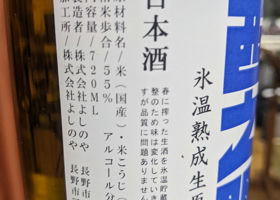 氷温熟成生原
日本酒
春に搾った生酒を氷温貯蔵
整のため味は変化していき
すが品質に問題ありません
原材料名/米(国産)・米こうじ(
精米歩合/55% アルコール分
内容量/720ML
製造者/株式会社よしのや 長野市
加工所/株式会社よしのや 長野市